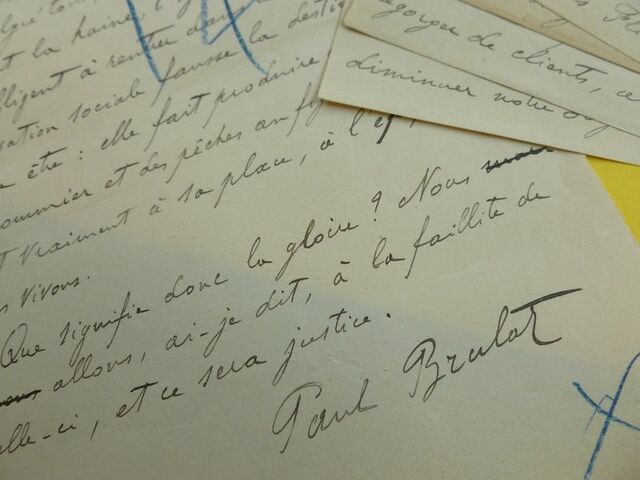 t la haine, l'
lligent à rentrer dans
vation sociale fausse la destin
être : elle fait produire
pommier et des pêches au fig
t vraiment à sa place, à l'
s vivons.
Que signifie donc la gloire ? Nous
allons, ai-je dit, à la faillite de
elle-ci, et ce sera justice.
Paul Brulat
égorger de clients, ce
diminuer notre org